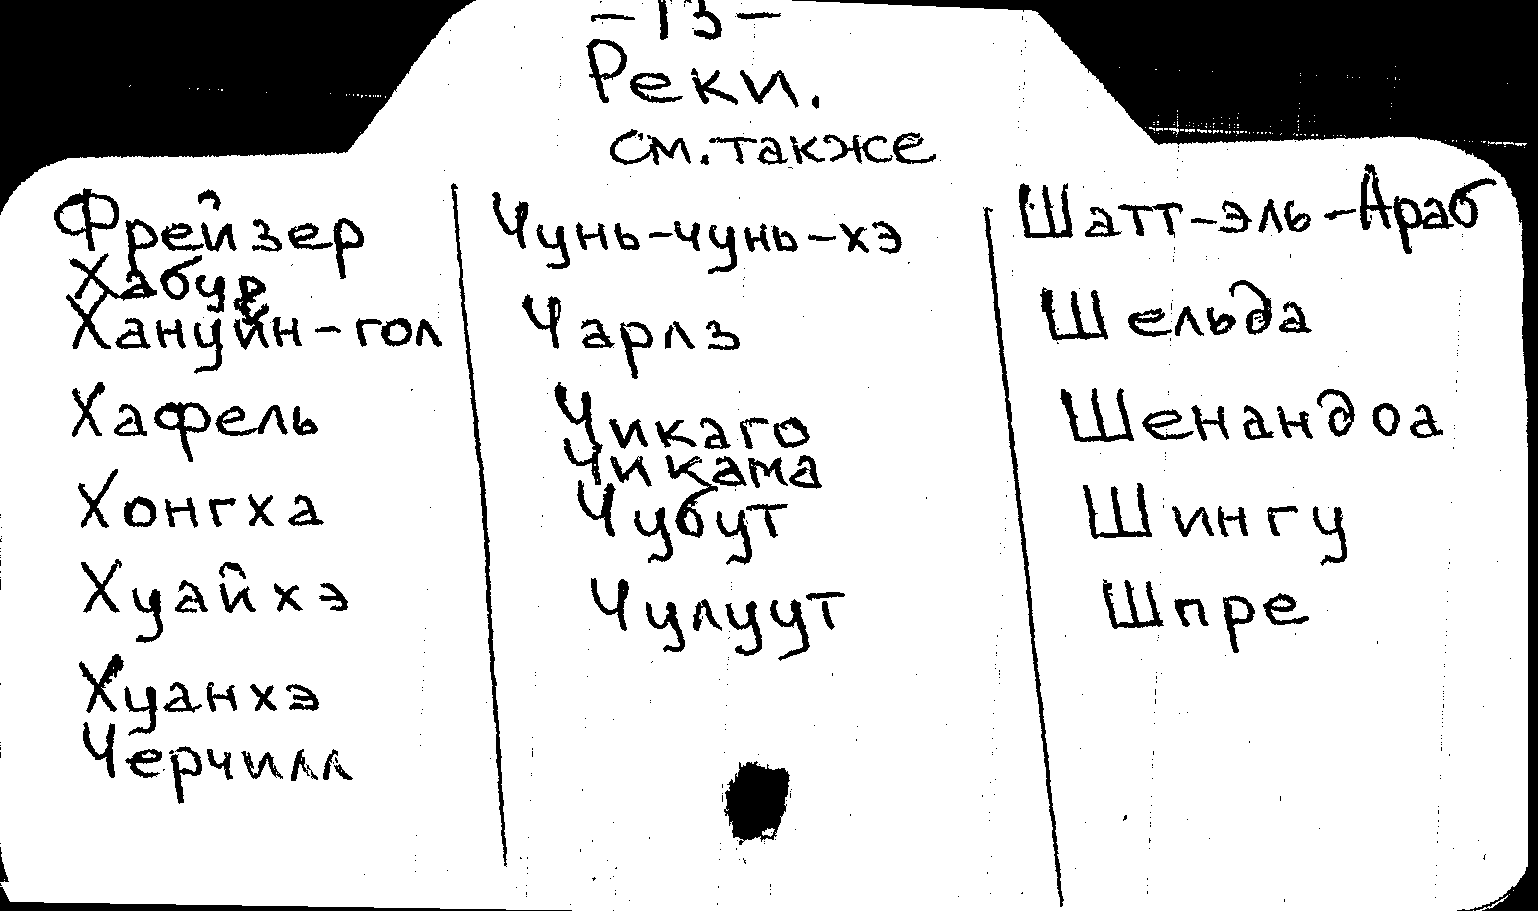 -13-
Реки.
см. также
Фрейзер
Хабур
Хануйн-гол
Хафель
Хонгха
Хуайхэ
Хуанхэ
Черчилл
Чунь-чунь-хэ
Чарлз
Чикаго
Чикама
Чубут
Чулуут
Шатт-эль-Араб
Шельда
Шенандоа
Шингу
Шпре